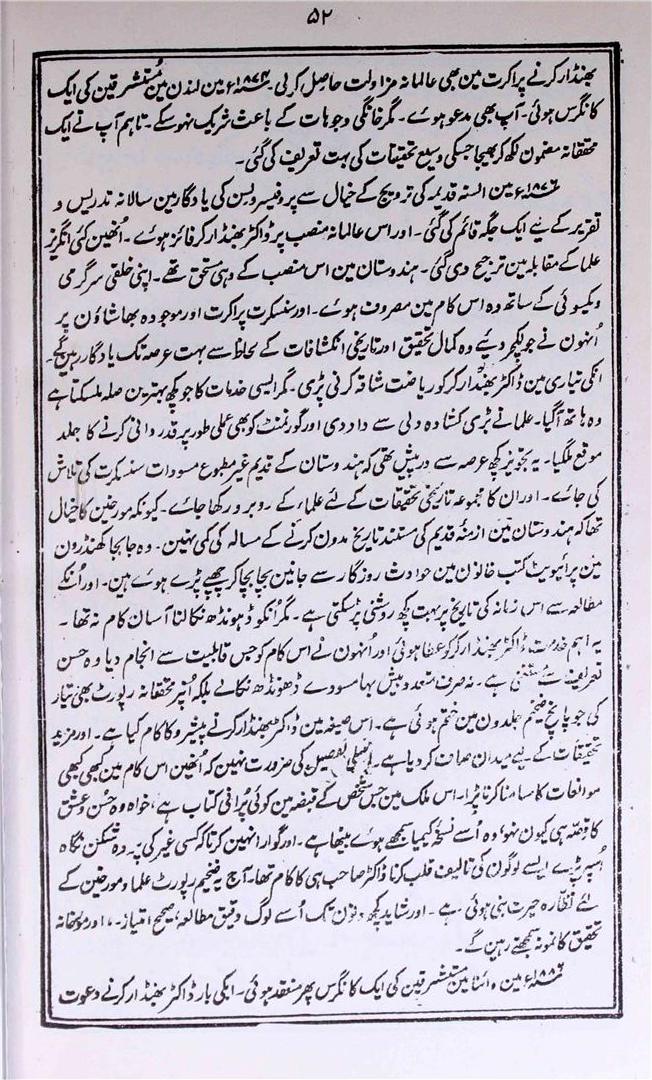 ۵۲
بھنڈارکرنے پراکرت مین بھی عالمانہ مزاولت حاصل کرلی۔ ۱۸۷۴ء مین لندن مین مُستشرقین کی ایک
کانگرس ہوئی۔ آپ بھی مدعو ہوے۔ مگر خانگی وجوہات کے باعث شریک نہوسکے۔ تاہم آپ نے ایک
محققانہ مضمون لکھ کر بھیجا جسکی وسیع تحقیقات کی بہت تعریف کی گئی۔
۱۸۷۶ء مین السنۂ قدیمہ کی ترویج کے خیال سے پروفیسر ولسن کی یادگار مین سالانہ تدریس و
تقریر کے لیے ایک جگہ قائم کی گئی۔ اور اس عالمانہ منصب پر ڈاکٹر بھنڈارکر فائز ہوے۔ اُنھین کئی انگریز
علما کے مقابلہ مین ترجیح دی گئی۔ ہندوستان مین اس منصب کے وہی مستحق تھے۔ اپنی خلقی سرگرمی
و یکسوئی کے ساتھ وہ اس کام مین مصروف ہوے۔ اور سنسکرت پراکرت اور موجودہ بھاشاؤن پر
اُنہون نے جو لکچر دیئے وہ کمال تحقیق اور تاریخی انکشافات کے لحاظ سے بہت عرصہ تک یادگار رہین گے۔
انکی تیاری مین ڈاکٹر بھنڈارکر کو ریاضت شاقہ کرنی پڑی۔ مگر ایسی خدمات کا جو کچھ بہترین صلہ ملسکتا ہے
وہ ہاتھ آگیا۔ علما نے بڑی کشادہ دلی سے داد دی اور گورنمنٹ کو بھی عملی طور پر قدردانی کرنے کا جلد
موقع ملگیا۔ یہ تجویز کچھ عرصہ سے درپیش تھی کہ ہندوستان کے قدیم غیر مطبوع مسودات سنسکرت کی تلاش
کی جائے۔ اور ان کا مجموعہ تاریخی تحقیقات کے لئے علماء کے روبرو رکھا جائے۔ کیونکہ مورخین کا خیال
تھا کہ ہندوستان مین ازمنۂ قدیم کی مستند تاریخ مدون کرنے کے مسالہ کی کمی نہین۔ وہ جابجا کھنڈرون
مین پرائیویٹ کتب خانون مین حوادث روزگار سے جانین بچا بچا کر چھپے پڑے ہوے ہین۔ اور اُنکے
مطالعہ سے اس زمانہ کی تاریخ پر بہت کچھ روشنی پڑسکتی ہے۔ مگر انکو ڈہونڈھ نکالنا آسان کام نہ تھا۔
یہ اہم خدمت ڈاکٹر بھنڈارکر کو عطا ہوئی اور اُنہون نے اس کام کو جس قابلیت سے انجام دیا وہ حسن
تعریف سے مستغنی ہے۔ نہ صرف متعدد بیش بہا مسودے ڈھونڈھ نکالے بلکہ اُنپر محققانہ رپورٹ بھی تیار
کی جو پانچ ضخیم جلدون مین ختم ہوئی ہے۔ اس صیغہ مین ڈاکٹر بھنڈارکرنے پیشرو کا کام کیا ہے۔ اور مزید
تحقیقات کے لیے میدان صاف کردیا ہے۔ تفصیل کی ضرورت نہین کہ اُنھین اس کام مین کبھی کبھی
موانعات کا سامنا کرنا پڑا۔ اس ملک مین جس شخص کے قبضہ مین کوئی پُرانی کتاب ہے، خواہ وہ حُسن و عشق
کا قصّہ ہی کیون نہو، وہ اُسے نسخۂ کیمیا سمجھے ہوے بیٹھا ہے۔ اور گوارا نہین کرتا کہ کسی غیر کی پردہ شکن نگاہ
اُسپر پڑے ایسے لوگون کی تالیف قلب کرنا ڈاکٹر صاحب ہی کا کام تھا۔ آج یہ ضخیم رپورٹ علما و مورخین کے
لئے نظارۂ حیرت بنی ہوئی ہے۔ اور شاید کچھ دنون تک اُسے لوگ دقیق مطالعہ، صحیح امتیاز۔، اور مورخانہ
تحقیق کا نمونہ سمجھتے رہین گے۔
۱۸۸۶ء مین وائنا مین مستشرقین کی ایک کانگرس پھر منعقد ہوئی۔ ابکی بار ڈاکٹر بھنڈارکرنے دعوت